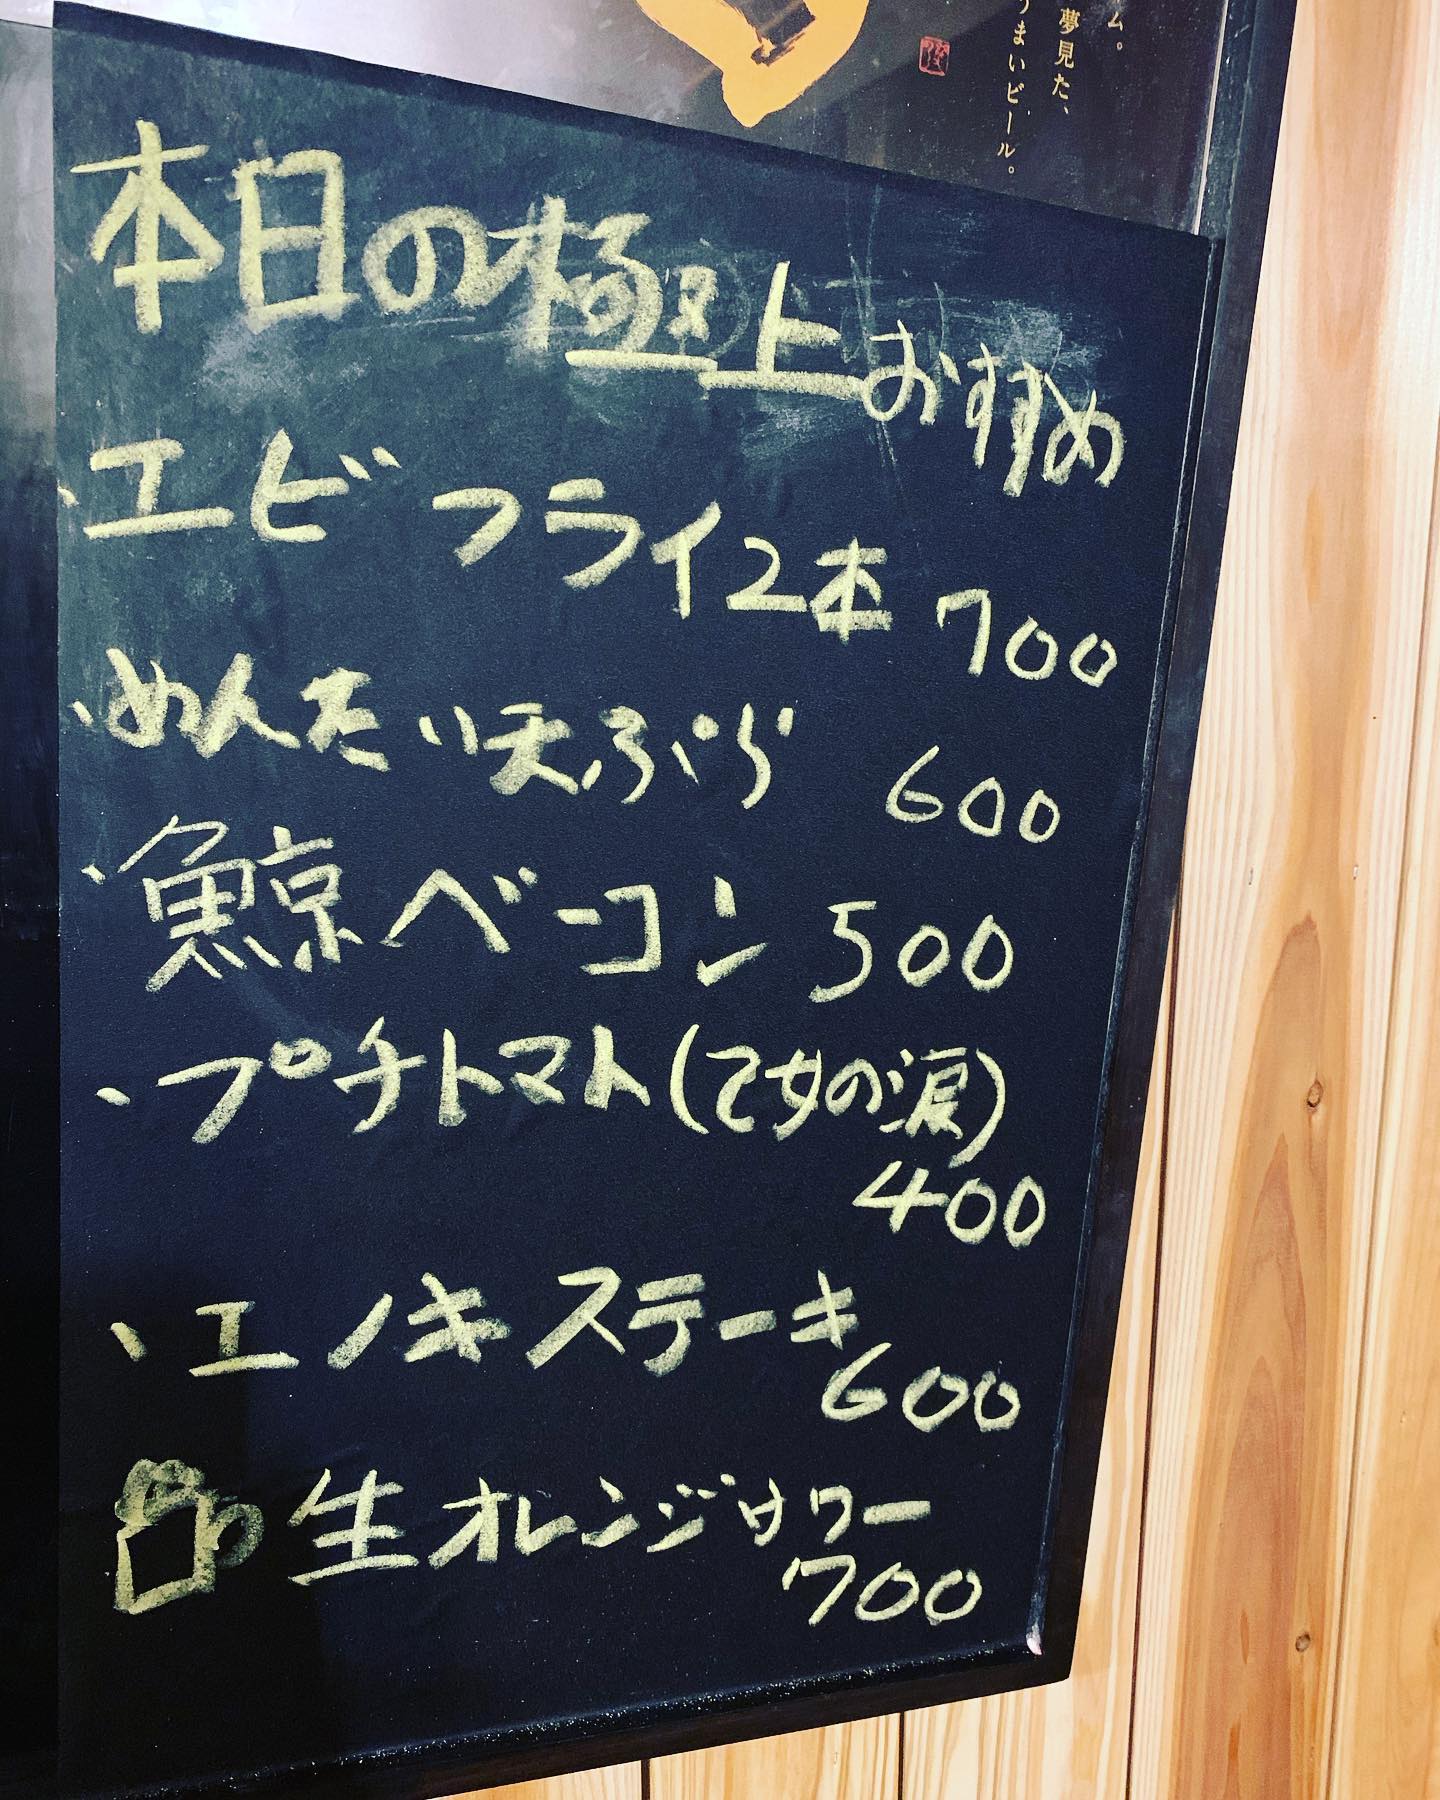 ム。
夢見た、
うまいビール。
本日の極上おすすめ
、エビフライ2本 700
、めんたい天ぷら 600
、鯨ベーコン 500
、プチトマト(乙女の涙)
400
、エノキステーキ
600
生オレンジサワー
700